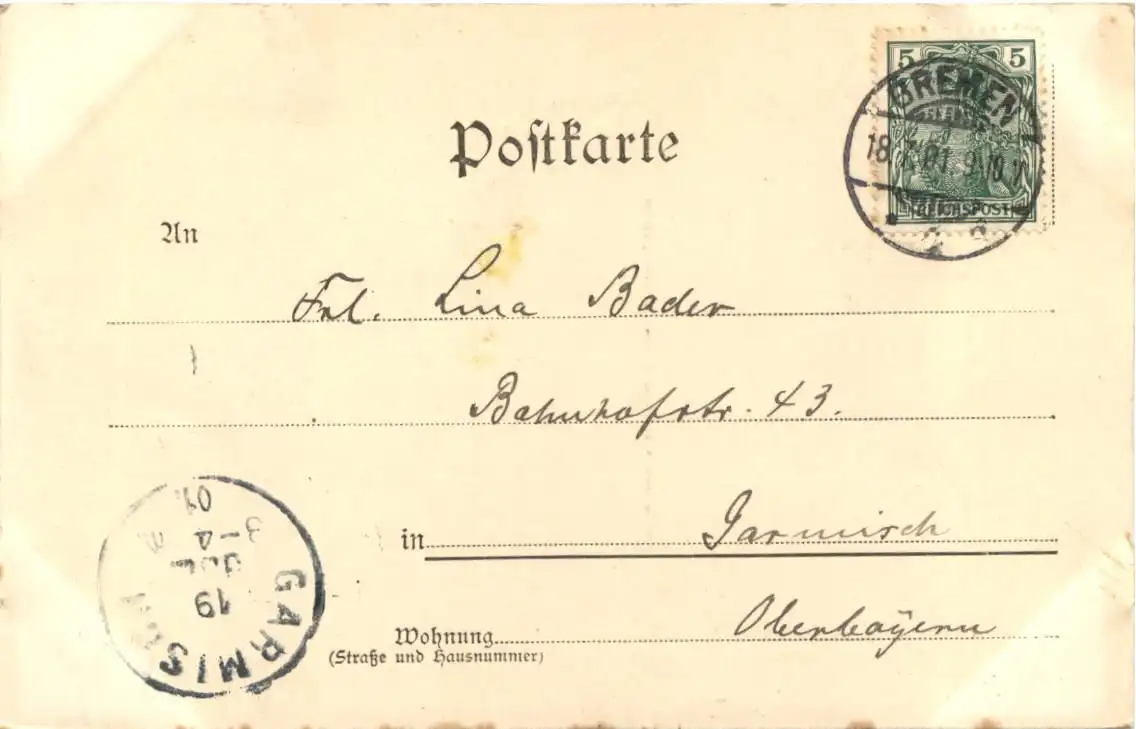 Postkarte
5 5
BREMEN
18.7.01. 9-10 V.
REICHSPOST
An
Frl. Lina Bader
Bahnhofstr. 43.
in Garmisch
Wohnung Oberbayern
(Straße und Hausnummer)
GARMISCH
19
JUL
3-4
01